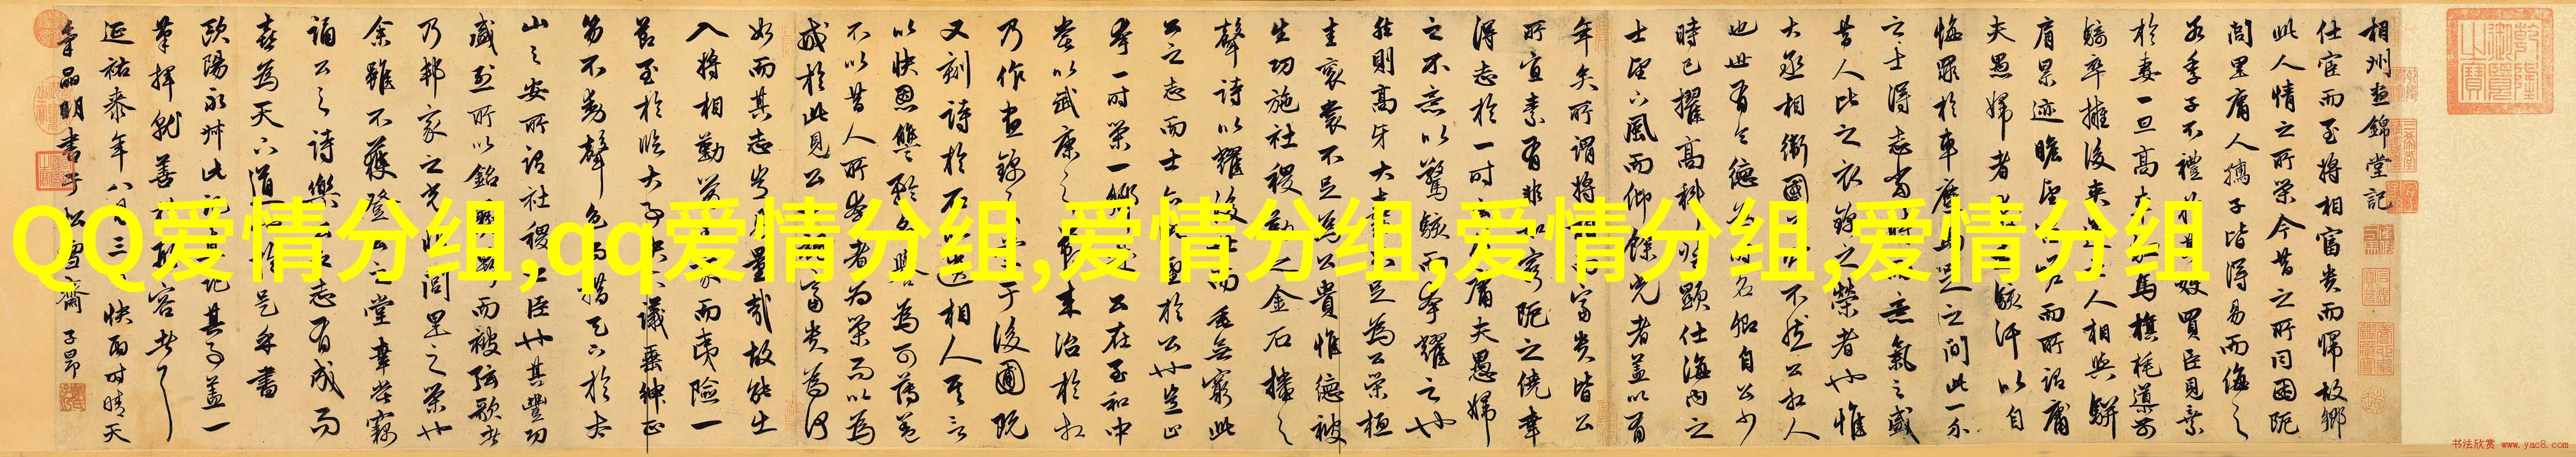 相州晝錦堂記
仕宦而至將相富貴而歸故鄉
此人情之所榮今昔之所同困阨
閭里庸人孺子皆得易而侮之
若季子不禮於其嫂買臣見棄
於妻一旦高車駟馬旗旄導前
騎卒擁後夾道之人相與駢
肩累迹瞻望咨嗟而所謂庸
夫愚婦者奔走駭汗以自
悔罪於車塵馬足之間此一介
之士得志當時意氣之盛
昔人比之衣錦之榮者也惟
大丞相衛國公不然公相人
也世有令德為時名卿自公少
時已擢高科顯仕海內之
士望下風而仰餘光者蓋以有
年矣所謂將相而富貴皆公
所宜素有非如窮阨之僥幸
得志於一時庸夫愚婦
之不意以驚駭而夸耀之也
然則高牙大纛不足為公榮桓
圭袞裳不足為公貴惟德被
生功施社稷勒之金石播之
聲詩以耀後世而垂無窮此
公之志而士亦望於公也豈止
夸一時榮一鄉哉公在至和中
嘗以武康之節來治於相
乃作晝錦之堂于後圃既
又刻詩於石以遺相人其言
以快恩讎矜名譽為可薄蓋
不以昔人所夸者為榮而以為
戒於此見公富貴為何
如而其志豈易量哉故能出
入將相勤勞王家而夷險一
節至於臨大事決大議垂紳正
笏不動聲色而措天下於泰
山之安所謂社稷之臣也其豐功
盛烈所以銘彝鼎而被絃歌者
乃邦家之光非閭里之榮也
余雖不獲登公之堂幸嘗竊
誦公之詩樂公之志有成而
喜為天下道也於是乎書
歐陽永叔此記
筆揮就善
延祐 年八月三日快雨時晴天
明書于松雪齋 子昂
QQ爱情分组,qq爱情分组,爱情分组,爱情分组,爱情分组
书法欣赏 www.yac8.com